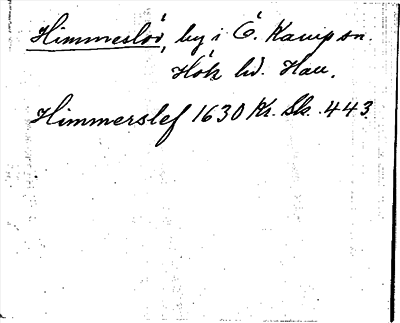 Himmeslöv, by i Ö. Karup sn.
Hök hd. Hall.
Himmerslef 1630 Kr. Sk. 443.